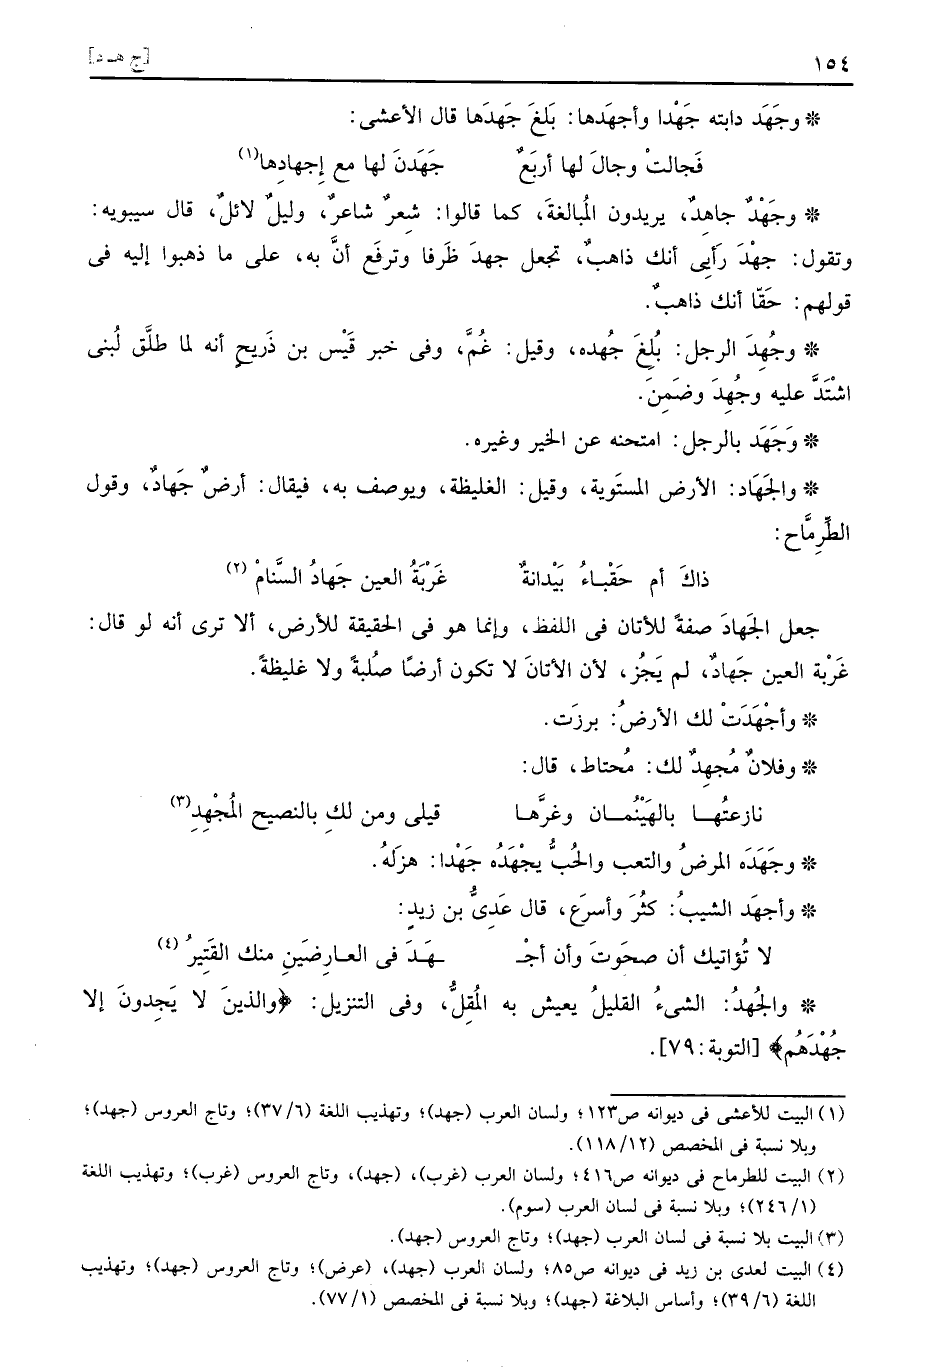 ١٥٤ [ج هـ د]
* وجَهَد دابته جَهْدا وأجهَدَها: بَلَغَ جَهدَها قال الأعشى:
فَجالتْ وجالَ لها أربَعٌ جَهَدنَ لها مع إِجهادِها(١)
* وجَهْدٌ جاهِدٌ، يريدون المُبالغةَ، كما قالوا: شِعرٌ شاعرٌ، وليلٌ لائلٌ، قال سيبويه:
وتقول: جهْدَ رَأيِى أنك ذاهبٌ، تجعل جهدَ ظَرفا وترفَع أنَّ به، على ما ذهبوا إليه فى
قولهم: حَقّا أنك ذاهبٌ.
* وجُهِدَ الرجل: بُلِغَ جُهده، وقيل: غُمَّ، وفى خبر قَيْس بن ذَريحٍ أنه لما طلَّق لُبنى
اشْتَدَّ عليه وجُهِدَ وضَمِنَ.
* وَجَهَد بالرجل: امتحنه عن الخير وغيره.
* والجَهَاد: الأرض المستَوية، وقيل: الغليظة، ويوصف به، فيقال: أرضٌ جَهادٌ، وقول
الطِّرِمَّاح:
ذاكَ أم حَقْباءُ بَيْدانةٌ غَرْبَةُ العين جَهادُ السَّنامْ (٢)
جعل الجَهادَ صفةً للأتان فى اللفظ، وإنما هو فى الحقيقة للأرض، ألا ترى أنه لو قال:
غَرْبة العين جَهادٌ، لم يَجُز، لأن الأتانَ لا تكون أرضًا صُلبةً ولا غليظةً.
* وأجْهَدَتْ لك الأرضُ: برزَت.
* وفلانٌ مُجهِدٌ لك: مُحتاط، قال:
نازعتُهـا بالهَيْنُمـان وغرَّهـا قيلى ومن لكِ بالنصيح المُجْهِدِ(٣)
* وجَهَدَه المرضُ والتعب والحُبُّ يجْهَدُه جَهْدا: هزَلَهُ.
* وأجهَد الشيبُ: كثُرَ وأسرَع، قال عَدِىُّ بن زيدٍ:
لا تُؤاتيك أن صحَوتَ وأن أجْـ ـهَـدَ فى العـارِضَينِ منك القَتِيرُ (٤)
* والجُهدُ: الشىءُ القليلُ يعيش به المُقِلُّ، وفى التنزيل: ﴿والذينَ لا يَجِدونَ إلا
جُهْدَهُم﴾ [التوبة: ٧٩].
(١) البيت للأعشى فى ديوانه ص١٢٣؛ ولسان العرب (جهد)؛ وتهذيب اللغة (٣٧/٦)؛ وتاج العروس (جهد)؛
وبلا نسبة فى المخصص (١١٨/١٢).
(٢) البيت للطرماح فى ديوانه ص٤١٦؛ ولسان العرب (غرب)، (جهد)، وتاج العروس (غرب)؛ وتهذيب اللغة
(٢٤٦/١)؛ وبلا نسبة فى لسان العرب (سوم).
(٣) البيت بلا نسبة فى لسان العرب (جهد)؛ وتاج العروس (جهد).
(٤) البيت لعدى بن زيد فى ديوانه ص٨٥؛ ولسان العرب (جهد)، (عرض)؛ وتاج العروس (جهد)؛ وتهذيب
اللغة (٣٩/٦)؛ وأساس البلاغة (جهد)؛ وبلا نسبة فى المخصص (٧٧/١).